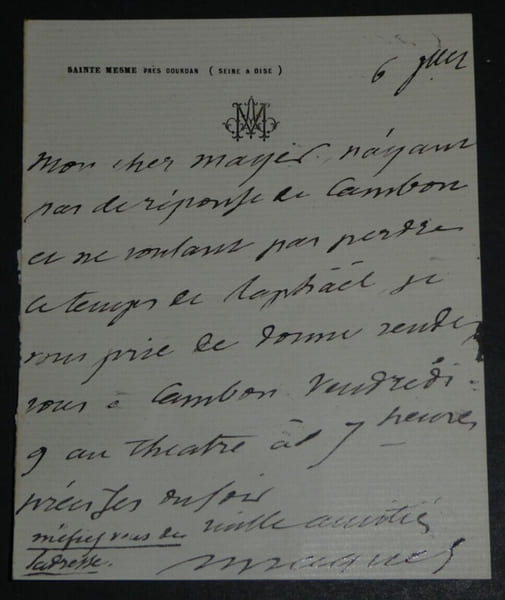 SAINTE MESME PRÈS DOURDAN ( SEINE & OISE )
6
AM
Mon cher mayer, n'ayant
pas de réponse de Cambon
et ne voulant pas perdre
le temps de Raphaël, je
vous prie de donner rendez
vous à Cambon Vendredi
9 au theatre à 7 heures
précises du soir
mille amitiés
méfiez vous de
l'adresse.
Maquet